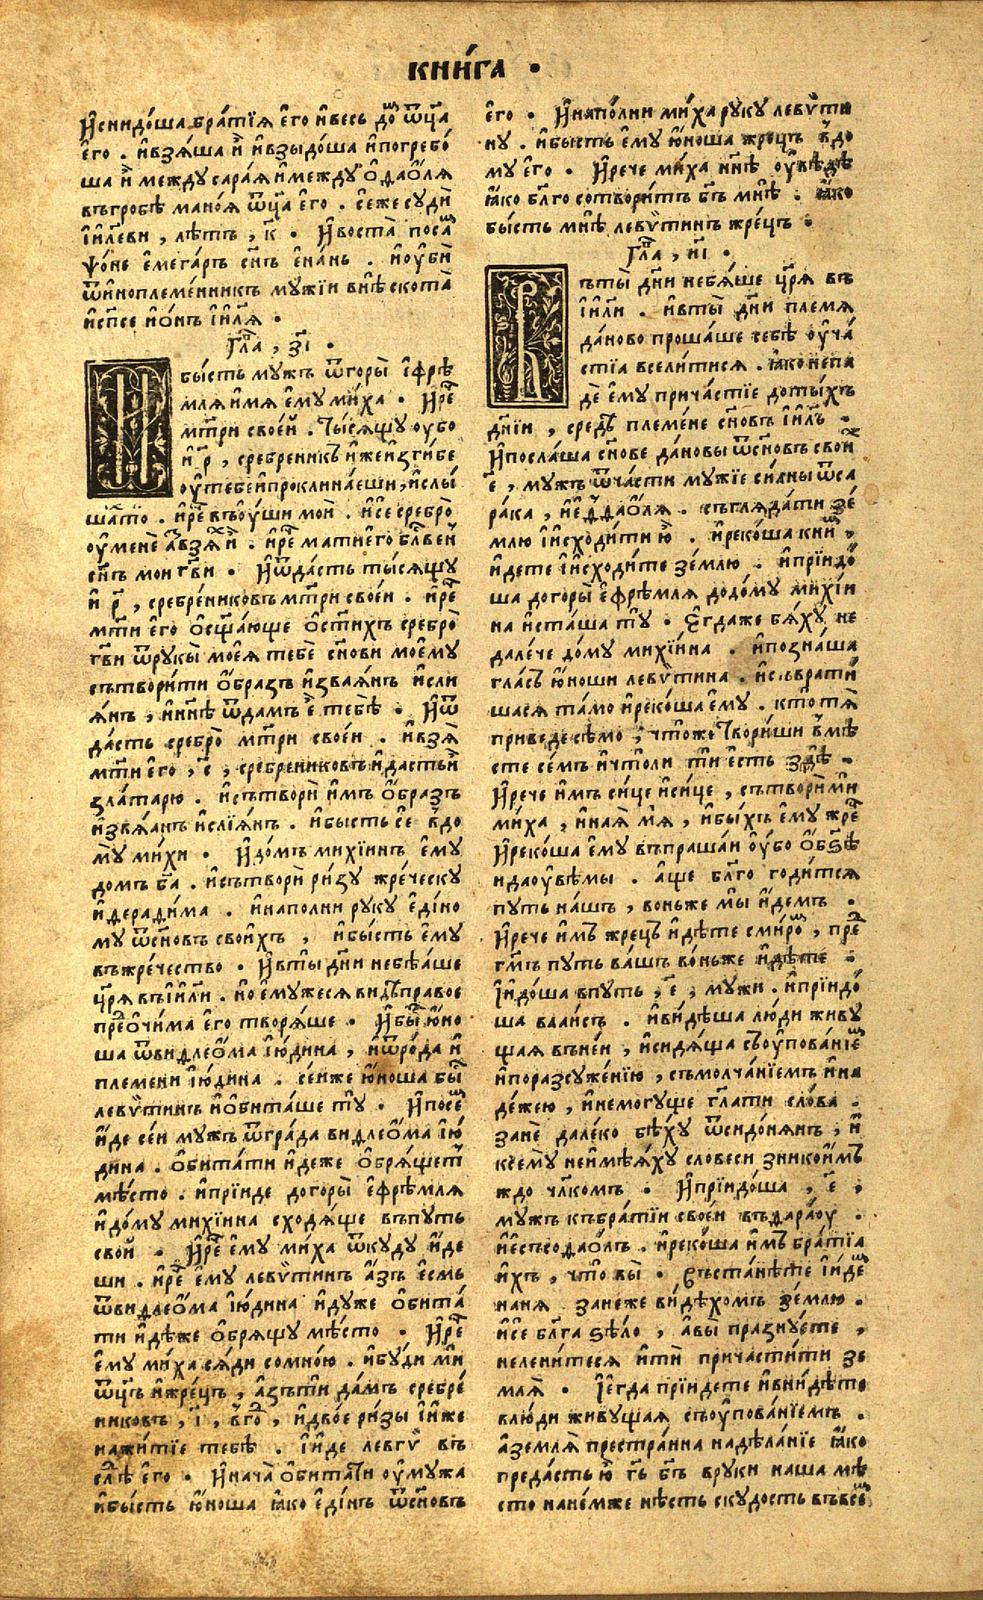 КНИ́ГА ·
И҆снидо́ша бра́тїѧ е҆го̀ и҆весь до́ⷨ ѿц҃а
е҆го . и҆взѧ́ша и҆̀ и҆взыдо́ша и҆погребо́
ша и҆̀ между сара́ѧ и҆между ѻ҆даѻ҆́лѧ
въгробѣ мано́ѧ ѿц҃а его . се́же суди̑
і҆и҃леви , лѣтъ , к҃ · И҆воста̀ посⷨа́
ѱо́не є҆мега́ръ сн҃ъ є҆на́нь . и҆оуби̑
ѿи҆нопле́менникъ мужїи внѣ скота̀
и҆сп҃се и҆ѻ́нъ і҆и҃лѧ ·
Гла҃ , з҃і ·
бы́сть мужъ ѿгоры̀ є҆фрѣ
млѧ и҆мѧ є҆му ми́ха · И҆рⷱе
мт҃ри свое́й . Ты́сѧщу оубо
и҆ р҃ , сребреникъ и҆̀же и҆зги́бе
оу҆тебе и҆проклина́еши , и҆слы́
ша́то . и҆рⷱе въѻ҆у́ши мои̑ . и҆се сребро̀
оу҆менѐ а҆́зъ взѧ́х и҆̀ . и҆рⷱе мати е҆го бл҃ве́н
сн҃ъ мои гв҃и · И҆ѿда́сть ты́сѧщу
и҆ р҃ , сребре́никовъ мт҃ри свое́и . и҆рⷱе
мт҃и е҆го ѻ҆сщ҃а́юще ѻ҆сти́хъ сребро̀
гв҃и ѿрукы̀ мое́ѧ тебѐ сн҃ови мое́му
сътвори́ти ѻ҆́бразъ и҆зваѧ́нъ и҆сли
ѧ́нъ , и҆нн҃ѣ ѿдамъ е҆̀ тебѣ̀ · И҆ѿ
да́сть сребро̀ мт҃ри свое́и . и҆взѧ̀
мт҃и е҆го , с҃ , сребре́никовъ и҆дастьи҆̀
зла́тарю . и҆сътвори̑ и҆мъ ѻ҆́бразъ
и҆звѧ́анъ и҆слїѧ́нъ . и҆бысть се в҆до
му̀ ми́хи · И҆до́мъ михїинъ є҆му
домъ бж҃а . и҆сътвори̑ ри́зу жре́ческу
и҆дерадима . и҆наполни руку є҆ди́но
му ѿсн҃овъ свои́хъ , и҆бы́сть є҆му
въжре́чество · И҆вты̀ дн҃и небѣ́аше
цр҃ѧ въі҆и҃ли . и҆о е҆мужесѧ видѣ пра́вое
пред̾ѻчи́ма е҆го творѧ́ше · И҆бы́ⷭ ю҆но
ша ѿвидлеѻ҆ма і҆ю́дина , и҆ѿро́да и҆
племени і҆ю́дина . се́иже ю҆́ноша бы́ⷭ
леву̀тинъ и҆ѻ҆бита́ше ту̀ · И҆по́сеⷨ
и҆́де се́и мужъ ѿгра́да видлеѻ҆ма і҆ю́
дина . ѻ҆бита́ти и҆де́же ѻ҆брѧ́щеⷮ
мѣ́сто . и҆прїи́де догоры̀ є҆фрѣ́млѧ
и҆до́му михїина сходѧ́ще въпуть
свой · И҆рⷱе є҆му ми́ха ѿкуду и҆́де
ши . и҆рⷱе є҆му леву̀тинъ а҆́зъ є҆смь
ѿвидлеѻ҆ма і҆ю́дина и҆дуже ѻ҆бита́
ти и҆дѣже ѻ҆брѧщу мѣ́сто · И҆рⷱе
є҆му ми́ха сѧ́ди сомно́ю . и҆бу́ди ми
ѿц҃ъ и҆жре́цъ , а҆зъти да́мъ сребре́
никовъ , і҃ , вгⷣо , и҆дво́е ри́зы і҆и҆же
нажи́тїе тебѣ̀ . і҆и҆де левгу̀ въ
слѣⷣ е҆го · И҆нача̀ ѻ҆бита́ти оу҆мужа
и҆бы́сть ю҆́ноша ꙗ҆ко є҆ди́нъ ѿсн҃овъ
е҆го · И҆напо́лни ми́ха ру́ку леву̀ти
ну . и҆бы́сть є҆му ю҆́ноша жрецъ в҆до
му е҆го · И҆рече ми́ха нн҃ѣ оу҆вѣдѣ
ꙗ҆ко бл҃го сотвори́тъ бг҃ъ мнѣ . ꙗ҆ко
бы́сть мнѣ леву̀тинъ жре́цъ ·
Гла҃ , и҃і ·
ъты̀ дн҃и небѧ́ше цр҃ѧ въ
і҆и҃ли . и҆вты̀ дн҃и племѧ
да́ново проша́ше себѣ оу҆ча́
стїа всели́тисѧ . ꙗ҆ко непа
дѐ є҆му прича́стїе доты́хъ
дн҃їи , среⷣ племе́не сн҃овъ і҆и҃лъ ·
И҆посла́ша сн҃ове да́новы ѿсн҃овъ свои́ⷯ
, е҃ , мужъ ѿча́сти му́жїе си́лны ѿса
ра́ка , и҆е҆дⷣаѻ҆́лѧ . съглѧда́ти зе́
млю і҆и҆сходи́ти ю҆̀ . и҆реко́ша кни́ⷨ ,
и҆дете і҆и҆сходи́те зе́млю . и҆прїидо́
ша догоры̀ є҆фрѣ́млѧ додо́му михїи
на и҆ста́ша ту̀ · Е҆гда́же бѧ́ху не
дале́че до́му михїина . и҆позна́ша
гла́съ ю҆ноши леву̀тина . и҆съврати́
шасѧ та́мо и҆реко́ша є҆му . кто̀ тѧ̀
приведе сѣ́мо , что́же Твори́ши вмѣ
сте се́мъ и҆что́ли ти̑ є҆сть здѣ ·
И҆рече и҆мъ си́це и҆си́це , сътвори́ ми
ми́ха , и҆наѧ́ мѧ , и҆бы́хъ є҆му жрⷰе
И҆реко́ша є҆му въпраша́и оу҆бо ѻ҆бѕѣ
и҆даоу҆вѣ́мы . а҆ще бл҃го годи́тсѧ
путь на́шъ , воньже мы̀ и҆́демъ ·
И҆рече и҆мъ жрецъ и҆дѣ́те сми́роⷨ , преⷣ
гм҃ъ путь ва́шъ во́ньже и҆дѣ́те ·
І҆и҆до́ша впуть , е҃ , мужи . и҆прїидо́
ша влаисъ . и҆ви́дѣша лю́ди живу́
щаѧ вне́и , и҆сидѧ́ща съоу҆пова́нїеⷨ
и҆поразсуже́нїю , съмолча́нїемъ и҆на
де́жею , и҆немогуще гл҃ати сло́ва .
занѐ дале́ко бѣ́ху ѿсидо́нѧнъ , и҆
ксе́му неи҆мѣѧ́ху словеси зникои́мъ
ждо чл҃комъ · И҆прїидо́ша , е҃ ,
мужъ къбра́тїи свое́и въдара́оу .
и҆е҆съѻдаѻ҆́лъ . и҆реко́ша и҆мъ бра́тїа
и҆́хъ , что̀ вы̀ · Ръста́нѣте і҆и҆́деⷨ
наня занеже ви́дѣхомъ зе́млю .
и҆се бл҃га ѕѣло , а҆вы̀ празнуе́те ,
нелени́тесѧ и҆ти̑ причасти́ти зе
млѧ̀ · І҆е҆гда прїидете и҆вни́дѣте
влю́ди живущаѧ съоу҆пова́нїемъ .
а҆землѧ̀ престра́нна надѣла́нїе ꙗ҆ко
преда́сть ю҆̀ гь҃ бг҃ъ вруки наша мѣ
сто нане́мже нѣ́сть ску́дость въвсе́ⷨ